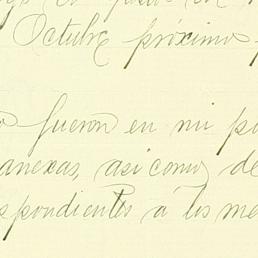 Octubre próximo
fueron en mi po
anexas, asi como de
spondientes á los me